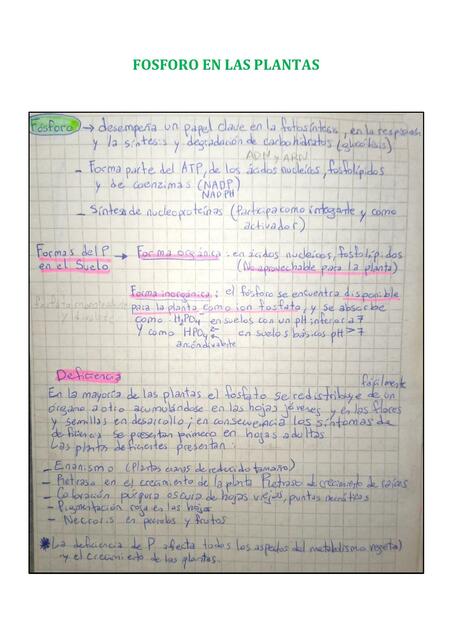 FOSFORO EN LAS PLANTAS
Fósforo → desempeña un papel clave en la fotosíntesis, en la respiración
y la síntesis y degradación de carbohidratos (glucólisis)
ADN y ARN
- Forma parte del ATP, de los ácidos nucleicos, fosfolípidos
y de coenzimas (NADP)
NADPH
- Síntesis de nucleoproteínas (Participa como integrante y como
activador)
Formas del P → Forma orgánica: en ácidos nucleicos, fosfolípidos
en el Suelo (No aprovechable para la planta)
Forma inorgánica: el fósforo se encuentra disponible
para la planta como ion fosfato, y se absorbe
como H₂PO₄⁻ en suelos con un pH inferior a 7
y como HPO₄²⁻ en suelos básicos pH > 7
anión divalente
Deficiencia
fácilmente
En la mayoría de las plantas el fosfato se redistribuye de un
órgano a otro acumulándose en las hojas jóvenes y en las flores
y semillas en desarrollo; en consecuencia los síntomas de
deficiencia se presentan primero en hojas adultas
Las plantas deficientes presentan:
- Enanismo (Plantas enanas de reducido tamaño)
- Retraso en el crecimiento de la planta Retraso de crecimiento de raíces
- Coloración púrpura oscura de hojas viejas, puntas necróticas
- Pigmentación roja en las hojas
- Necrosis en pecíolos y frutos
* La deficiencia de P afecta todos los aspectos del metabolismo vegetal
y el crecimiento de las plantas.